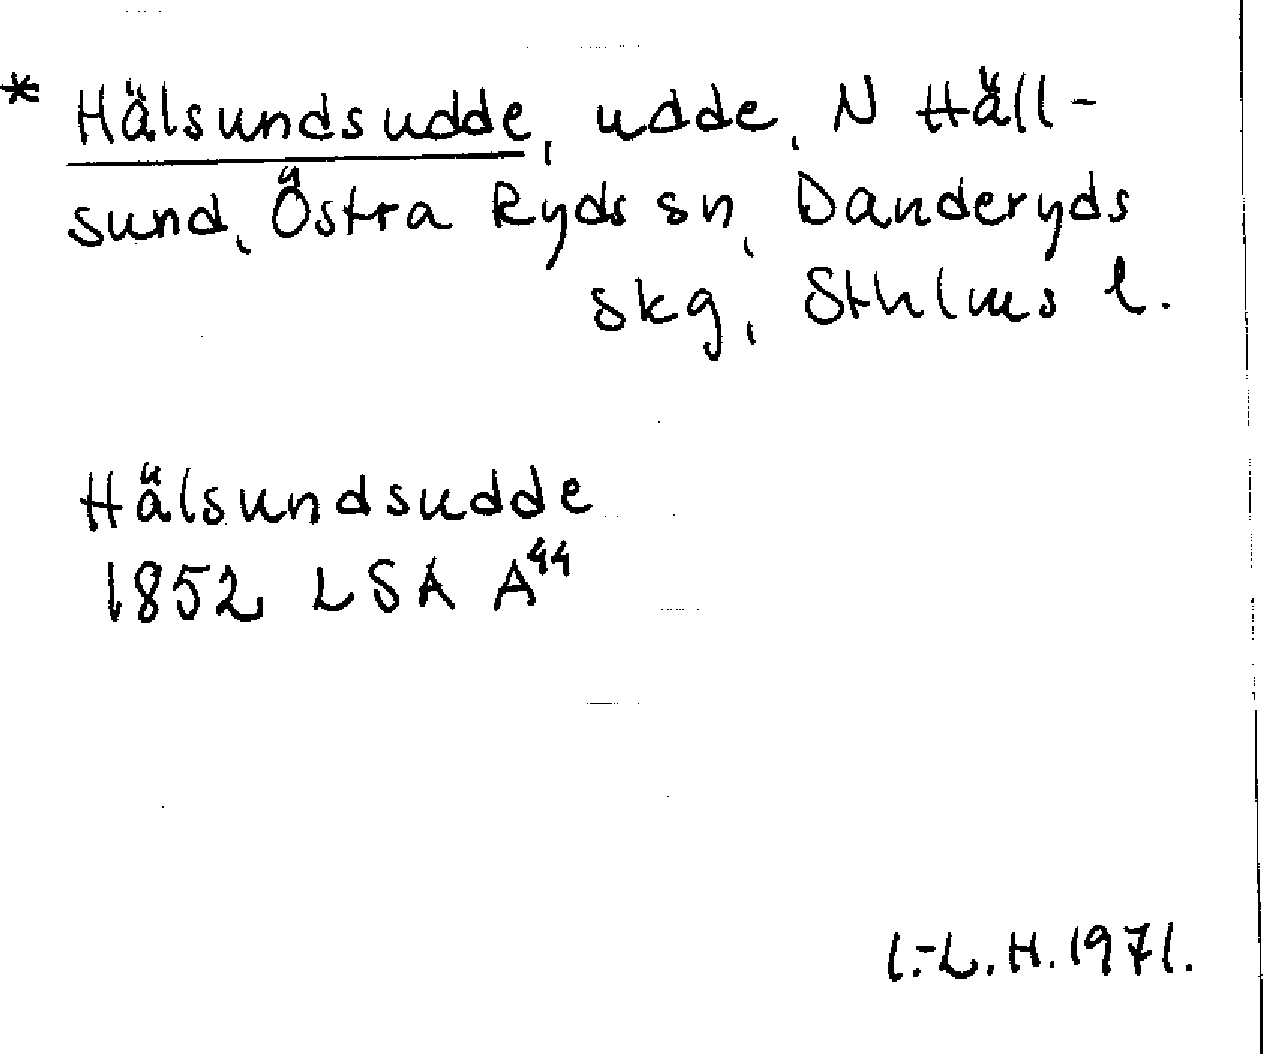 * Hälsundsudde, udde, N Häll-
sund, Östra Ryds sn, Danderyds
skg, Sthlms l.
Hälsundsudde
1852 LSA A44
I.-L. H. 1971.